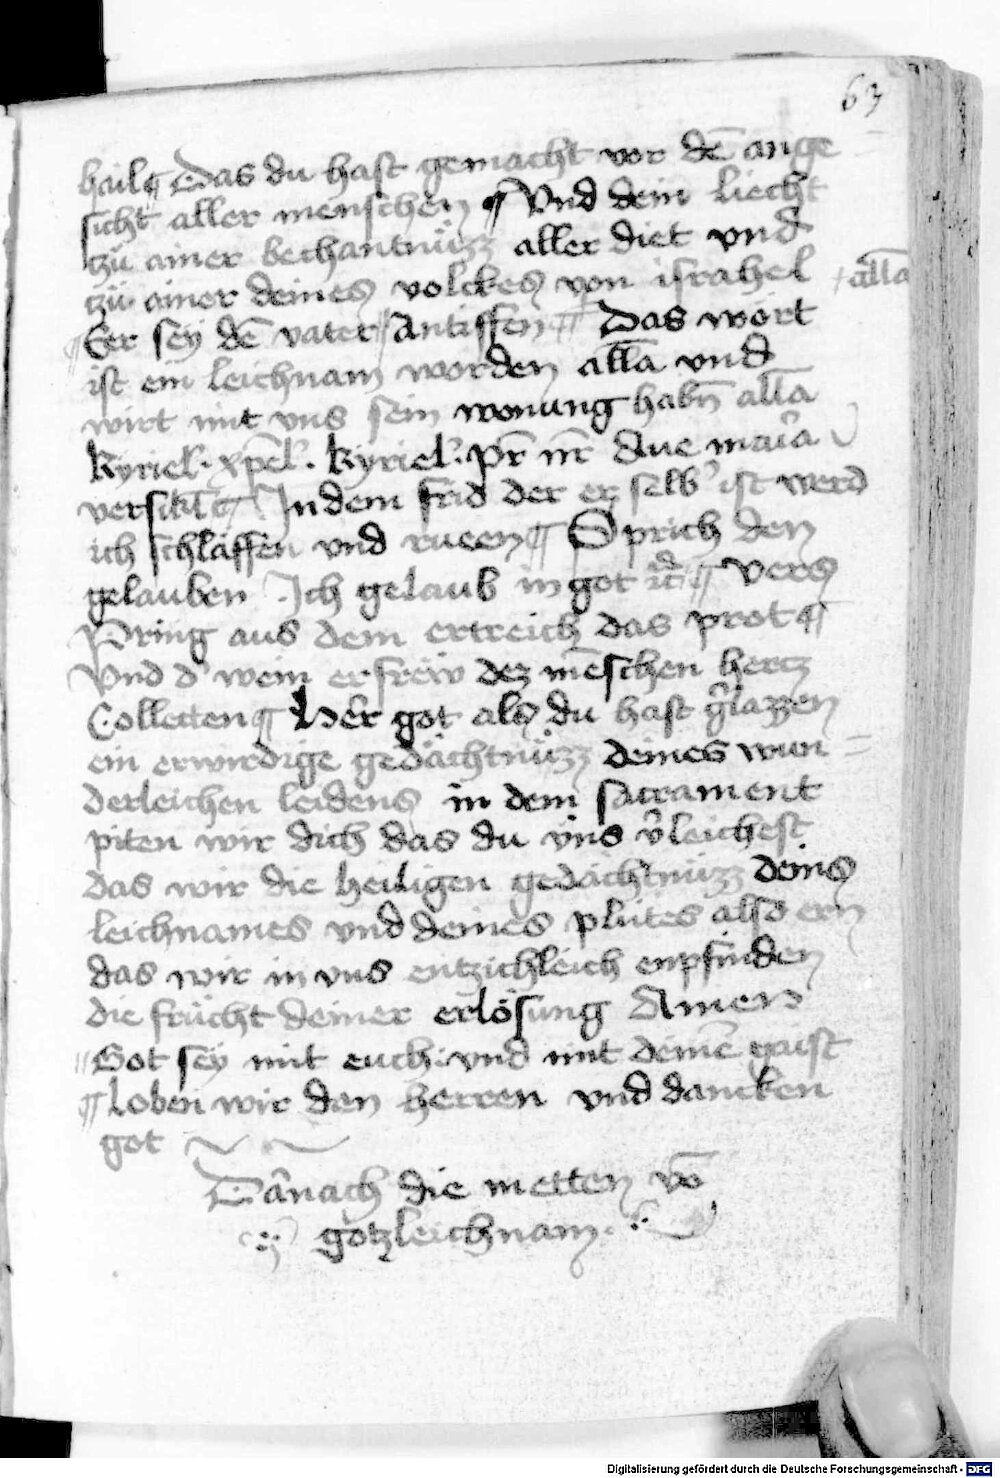 63
hail ¶ Das du hast gemacht vor dē ange
sicht aller menschen ¶ Vnd dein liecht
tzü ainer bechantnüzz aller diet vnd
tzü ainer deines volckes von israhel + alla
¶ Eer sey dē vater Antiffen ¶ Das wort
ist ein leichnam worden alla vnd
wirt mit vns sein wonung habn̄ alla
Kyriel. xpel. Kyriel. pr̄ nr̄ Aue maria
versikl ¶ In dem frid der er selb ist werd
ich schlaffen vnd rueen ¶ Sprich den
gelauben Ich gelaub in got ¶ Vers
Pring aus dem ertreich das prot ¶
Vnd d' wein erfrew dez mēschen hertz
Colletten ¶ Her got als du hast
ein erwirdige gedächtnüzz deines wun=
derleichen leidens in dem sacrament
piten wir dich das du vns v'leichest
das wir die heiligen gedächtnüzz deins
leichnames vnd deines plutes also ern
das wir in vns entzichleich enpfinden
die frücht deiner erlösung Amen
Got sey mit euch. vnd mit deinē gaist
¶ loben wir den herren vnd dancken
got
Darnach die metten vō
gotzleichnam
Digitalisierung gefördert durch die Deutsche Forschungsgemeinschaft - DFG